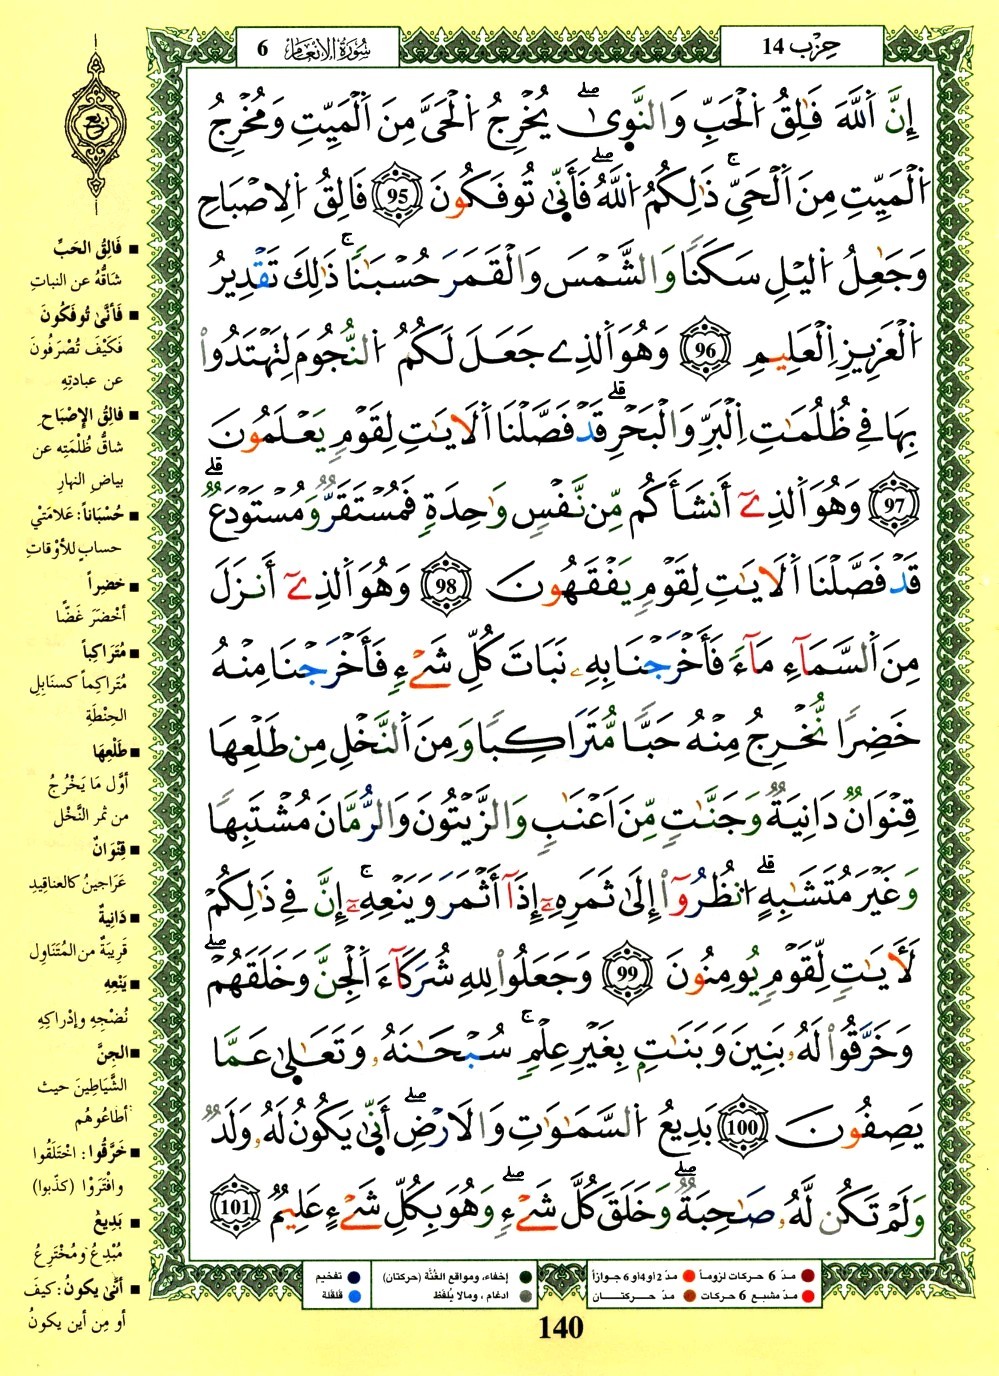 حِزْب 14
سُورَةُ الِانْعَام 6
إِنَّ اَ۬للَّهَ فَٰلِقُ اُ۬لْحَبِّ وَالنَّو۪ىٰۖ يُخْرِجُ اُ۬لْحَيَّ مِنَ اَ۬لْمَيِّتِ وَمُخْرِجُ
اُ۬لْمَيِّتِ مِنَ اَ۬لْحَيِّۚ ذَٰلِكُمُ اُ۬للَّهُۖ فَأَنّ۪ىٰ تُوفَكُونَ 95 فَالِقُ اُ۬لِاصْبَاحِ
وَجَٰعِلُ اُ۬ليْلِ سَكَناٗ وَالشَّمْسَ وَالْقَمَرَ حُسْبَٰناٗۚ ذَٰلِكَ تَقْدِيرُ
اُ۬لْعَزِيزِ اِ۬لْعَلِيمِ 96 وَهُوَ اَ۬لذِے جَعَلَ لَكُمُ اُ۬لنُّجُومَ لِتَهْتَدُواْ
بِهَا فِے ظُلُمَٰتِ اِ۬لْبَرِّ وَالْبَحْرِۗ قَدْ فَصَّلْنَا اَ۬لَايَٰتِ لِقَوْمٖ يَعْلَمُونَ
97 وَهُوَ اَ۬لذِےٓ أَنشَأَكُم مِّن نَّفْسٖ وَٰحِدَةٖ فَمُسْتَقَرّٞ وَمُسْتَوْدَعٞۗ
قَدْ فَصَّلْنَا اَ۬لَايَٰتِ لِقَوْمٖ يَفْقَهُونَ 98 وَهُوَ اَ۬لذِےٓ أَنزَلَ
مِنَ اَ۬لسَّمَآءِ مَآءٗ فَأَخْرَجْنَا بِهِۦ نَبَاتَ كُلِّ شَےْءٖ فَأَخْرَجْنَا مِنْهُ
خَضِراٗ نُّخْرِجُ مِنْهُ حَبّاٗ مُّتَرَاكِباٗ وَمِنَ اَ۬لنَّخْلِ مِن طَلْعِهَا
قِنْوَانٞ دَانِيَةٞ وَجَنَّٰتٖ مِّنَ اَعْنَٰبٖ وَالزَّيْتُونَ وَالرُّمَّانَ مُشْتَبِهاٗ
وَغَيْرَ مُتَشَٰبِهٍۗ اُ۟نظُرُوٓاْ إِلَىٰ ثَمَرِهِۦٓ إِذَآ أَثْمَرَ وَيَنْعِهِۦٓۚ إِنَّ فِے ذَٰلِكُمْ
لَأٓيَٰتٖ لِّقَوْمٖ يُومِنُونَ 99 وَجَعَلُواْ لِلهِ شُرَكَآءَ اَ۬لْجِنَّ وَخَلَقَهُمْۖ
وَخَرَّقُواْ لَهُۥ بَنِينَ وَبَنَٰتِۢ بِغَيْرِ عِلْمٖۚ سُبْحَٰنَهُۥ وَتَعَٰل۪ىٰ عَمَّا
يَصِفُونَ 100 بَدِيعُ اُ۬لسَّمَٰوَٰتِ وَالَارْضِۖ أَنّ۪ىٰ يَكُونُ لَهُۥ وَلَدٞ
وَلَمْ تَكُن لَّهُۥ صَٰحِبَةٞۖ وَخَلَقَ كُلَّ شَےْءٖۖ وَهُوَ بِكُلِّ شَےْءٍ عَلِيمٞ 101
ربع
■ فَالِقُ الحَبِّ
شاقُّهُ عن النباتِ
■ فَأَنَّىٰ تُوفَكُونَ
فَكَيْفَ تُصْرَفُونَ
عن عبادتِهِ
■ فالِقُ الإِصْبَاحِ
شاقُّ ظُلْمَتِه عن
بياضِ النهارِ
■ حُسْبَاناً: عَلامَتَيْ
حسابٍ للأوْقاتِ
■ خضِراً
أخْضَرَ غَضًّا
■ مُتَرَاكِباً
مُتَراكِماً كسنَابِلِ
الحِنْطَةِ
■ طَلْعِهَا
أوَّل مَا يَخْرُجُ
من ثمر النَّخْل
■ قِنْوَانٌ
عَرَاجينُ كالعناقِيدِ
■ دَانِيةٌ
قَرِيبَةٌ من المُتَنَاوِلِ
■ يَنْعِهِ
نُضْجِهِ وإدْراكِهِ
■ الجِنَّ
الشَّيَاطِينَ حيث
أطاعُوهُم
■ خَرَّقُوا: اخْتَلَقُوا
وافْتَرَوْا (كذّبوا)
■ بَدِيعُ
مُبْدِعُ ومُخْتَرِعُ
■ أنَّىٰ يكونُ: كيفَ
أو مِن أين يكونُ
مدّ 6 حركات لزوماً ● مدّ 2 أو 4 أو 6 جوازاً
مدّ مشبع 6 حركات ● مدّ حركتان
إخفاء، ومواقع الغُنَّة (حركتان)
ادغام، ومالا يُلفَظ
تفخيم
قلقلة
140